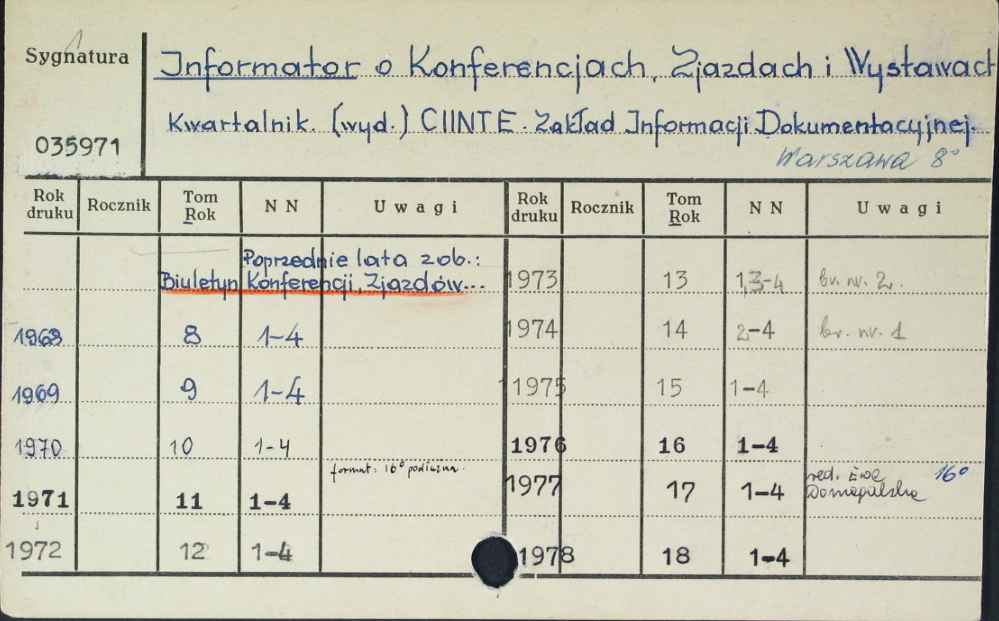 Sygnatura
Informator o Konferencjach, Zjazdach i Wystawach
Kwartalnik. (wyd.) CIINTE. Zakład Informacji Dokumentacyjnej.
035971
Warszawa 8°
Rok druku Rocznik Tom Rok NN Uwagi Rok druku Rocznik Tom Rok NN Uwagi
Poprzednie lata zob.:
Biuletyn Konferencji, Zjazdów... 1973 13 1,3-4 br. nr. 2.
1968 8 1-4 1974 14 2-4 br. nr. 1
1969 9 1-4 1975 15 1-4
1970 10 1-4 1976 16 1-4
format: 16°
1971 11 1-4 1977 17 1-4 red. Ewa Domagalska 16°
1972 12 1-4 1978 18 1-4